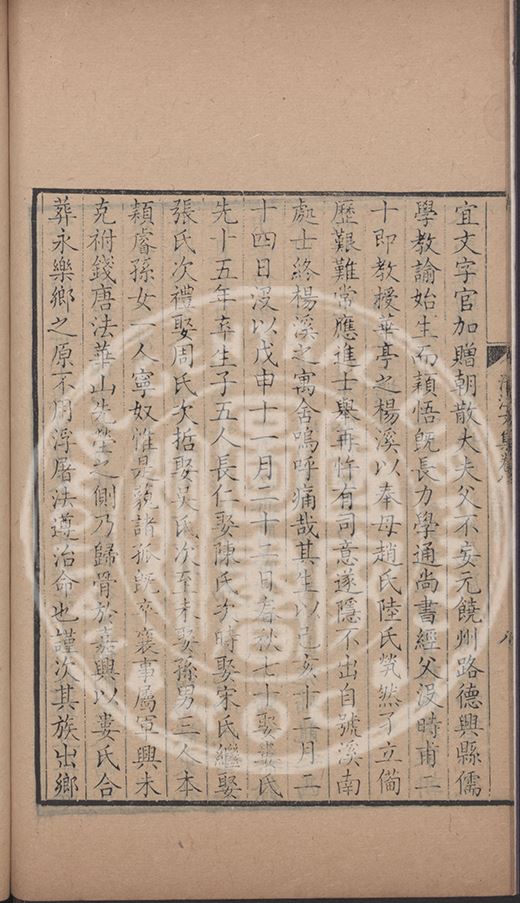 宜文字官加贈朝散大夫父不妄元饒州路德興縣儒
學教諭始生而穎悟既長力學通尚書經父沒時甫二
十即教授華亭之楊溪以奉母趙氏陸氏煢然孑立備
歷艱難常應進士舉再忤有司意遂隱不出自號溪南
處士終楊溪之寓舍嗚呼痛哉其生以己亥十二月二
十四日沒以戊申十一月二十三日春秋七十娶婁氏
先十五年卒生子五人長仁娶陳氏次時娶宋氏繼娶
張氏次禮娶周氏次哲娶吳氏次至未娶孫男三人本
穎睿孫女一人寧奴惟是藐諸孤既卒襄事屬軍興未
克祔錢唐法華山先塋之側乃歸骨於嘉興以婁氏合
葬永樂鄉之原不用浮屠法遵治命也謹次其族出鄉